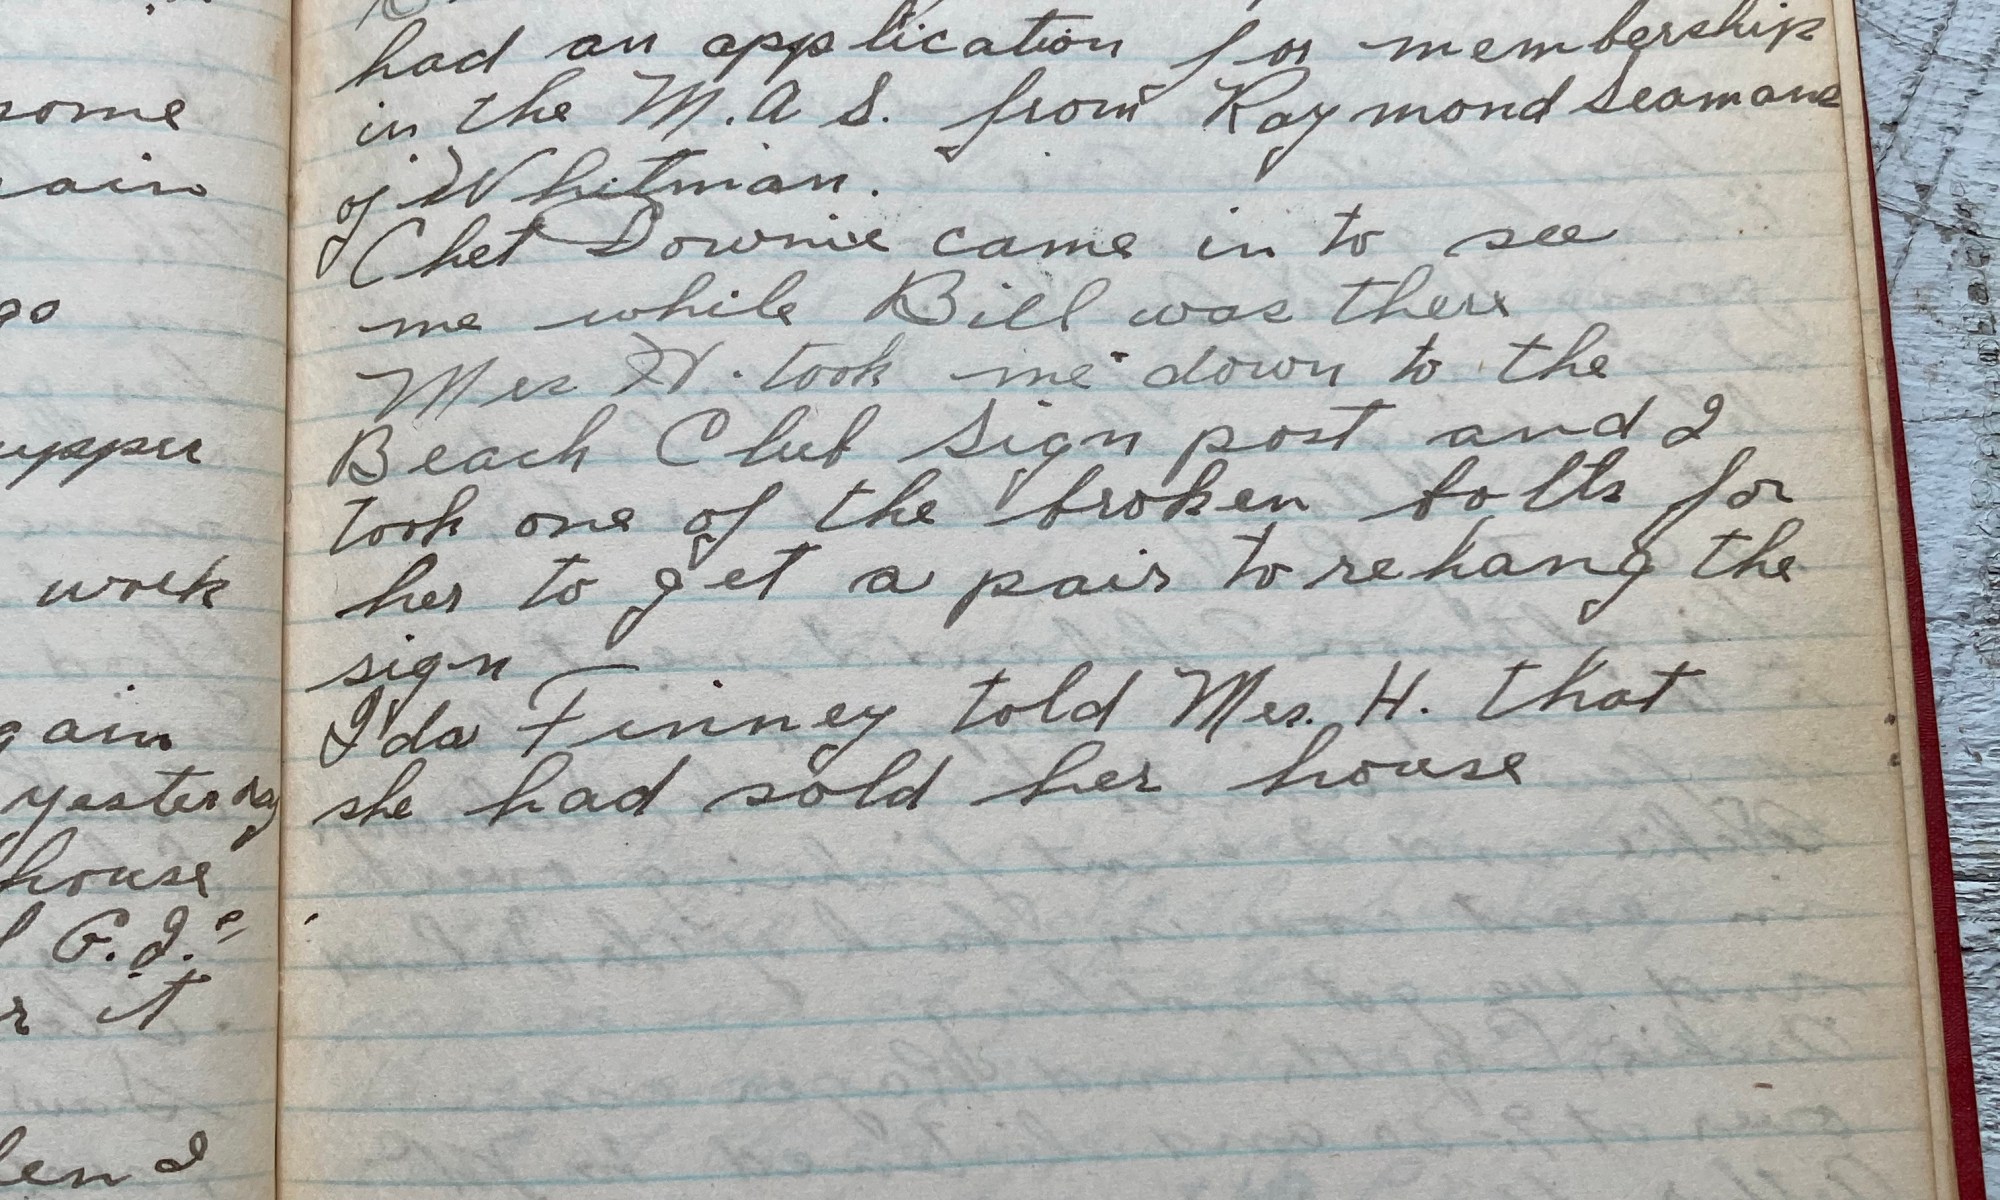 some
ain
go
upper
work
gain
yesterday
house
G.I.
it
I
had an application for membership
in the M.A.S. from Raymond Seamans
of Whitman.
Chet Downie came in to see
me while Bill was there
Mrs H. took me down to the
Beach Club Sign post and I
took one of the broken bolts for
her to get a pair to rehang the
sign
Ida Finney told Mrs. H. that
she had sold her house